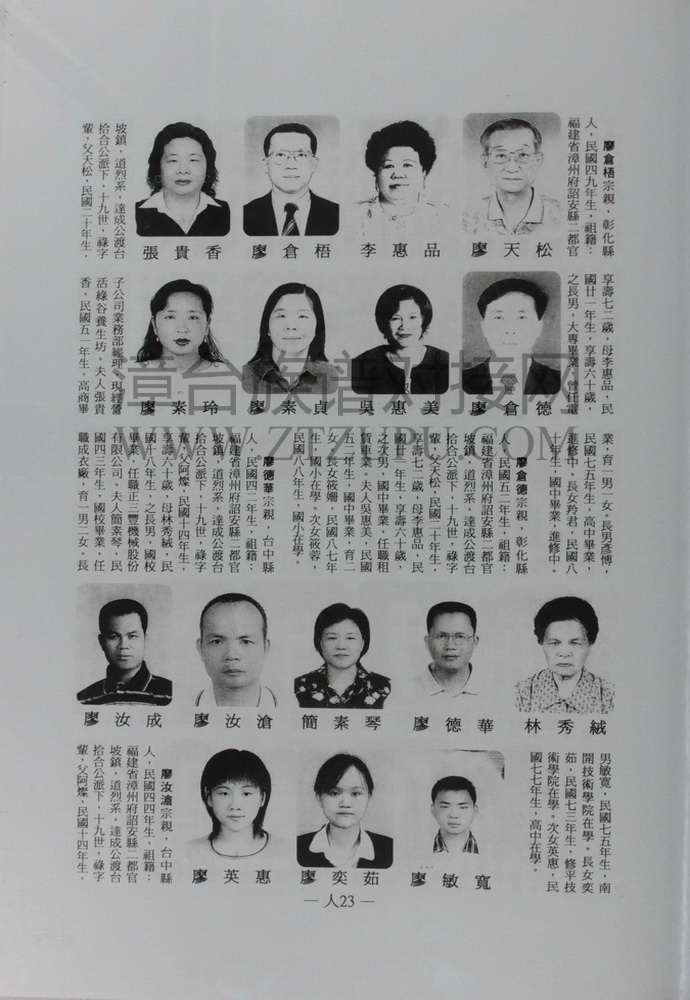 廖倉梧宗親，彰化縣
人，民國四九年生，祖籍：
福建省漳州府詔安縣二都官
坡鎮，道烈系，達成公渡台
拾合公派下，十九世，祿字
輩，父天松，民國二十年生，
廖天松
李惠品
廖倉梧
張貴香
享壽七二歲，母李惠品，民
國廿一年生，享壽六十歲，
之長男，大專畢業，曾任電
子公司業務部經理。現經營
活綠谷養生坊。夫人張貴
香，民國五一年生，高商畢
廖倉德
吳惠美
廖素貞
廖素玲
業，育一男一女。長男彥博，
民國七五年生，高中畢業，
進修中。長女羚君，民國八
十年生，國中畢業，進修中。
廖倉德宗親，彰化縣
人，民國五二年生，祖籍：
福建省漳州府詔安縣二都官
坡鎮，道烈系，達成公渡台
拾合公派下，十九世，祿字
輩，父天松，民國二十年生，
享壽七二歲，母李惠品，民
國廿一年生，享壽六十歲，
之次男，國中畢業，任職租
賃車業。夫人吳惠美，民國
五二年生，國中畢業，育二
女。長女筱姍，民國八七年
生，國小在學。次女筱蓉，
民國八八年生，國小在學。
廖德華宗親，台中縣
人，民國四二年生，祖籍：
福建省漳州府詔安縣二都官
坡鎮，道烈系，達成公渡台
拾合公派下，十九世，祿字
輩，父阿燦，民國十四年生，
享壽六十歲，母林秀絨，民
國十八年生，之長男，國校
畢業，任職正三豐機械股份
有限公司。夫人簡素琴，民
國四三年生，國校畢業，任
職成衣廠，育一男二女。長
林秀絨
廖德華
簡素琴
廖汝滄
廖汝成
男敏寬，民國七五年生，南
開技術學院在學。長女奕
茹，民國七三年生，修平技
術學院在學。次女英惠，民
國七七年生，高中在學。
廖敏寬
廖奕茹
廖英惠
廖汝滄宗親，台中縣
人，民國四四年生，祖籍：
福建省漳州府詔安縣二都官
坡鎮，道烈系，達成公渡台
拾合公派下，十九世，祿字
輩，父阿燦，民國十四年生，
— 人23 —
漳台族谱对接网
WWW.ZTZUPU.COM